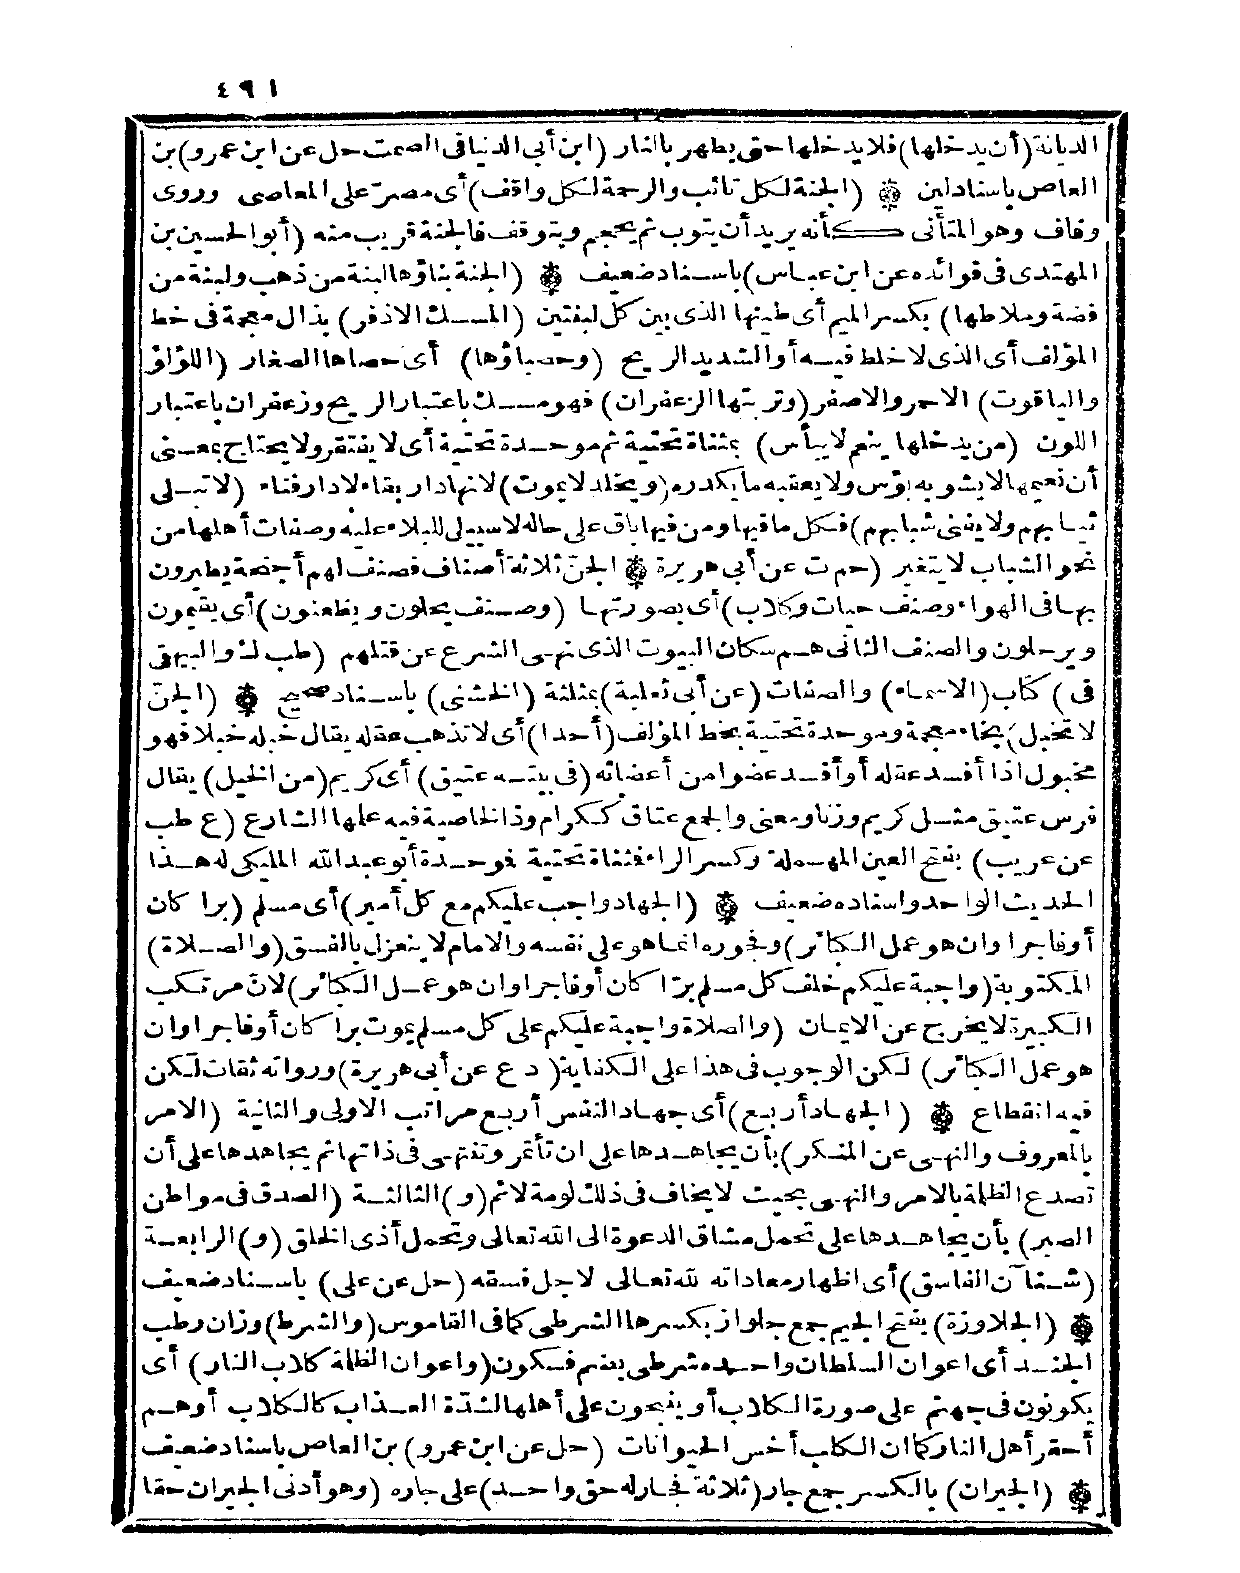 ٤٩١
الديانة (أن يدخلها) فلا يدخلها حتى يطهر بالنار (ابن أبي الدنيا فى الصمت حل عن ابن عمرو) بن
العاص باسناد لين ۞ (الجنة لكل تائب والرحمة لكل واقف) أى مصرّ على المعاصى وروى
وقاف وهو المتأنى كأنه يريد أن يتوب ثم يحجم ويتوقف فالجنة قريب منه (أبو الحسين بن
المهتدى فى فوائده عن ابن عباس) باسناد ضعيف ۞ (الجنة بناؤها لبنة من ذهب ولبنة من
فضة وملاطها) بكسر الميم أى طينها الذى بين كل لبنتين (المسك الاذفر) بذال معجمة فى خط
المؤلف أى الذى لا خلط فيه أو الشديد الريح (وحصباؤها) أى حصاها الصغار (اللؤلؤ
والياقوت) الاحمر والاصفر (وتربتها الزعفران) فهو مسك باعتبار الريح وزعفران باعتبار
اللون (من يدخلها ينعم لا يبأس) بمثناة تحتية ثم موحدة تحتية أى لا يفتقر ولا يحتاج بمعنى
أن نعيمها لا يشوبه بؤس ولا يعقبه ما يكدره (ويخلد لا يموت) لانها دار بقاء لا دار فناء (لا تبلى
ثيابهم ولا يفنى شبابهم) فكل ما فيها ومن فيها باق على حاله لا سبيل للبلاء عليه وصفات أهلها من
نحو الشباب لا يتغير (حم ت عن أبى هريرة ۞ الجنّ ثلاثة أصناف فصنف لهم أجنحة يطيرون
بها فى الهواء وصنف حيات وكلاب) أى بصورتها (وصنف يحلون ويظعنون) أى يقيمون
ويرحلون والصنف الثانى هم سكان البيوت الذى نهى الشرع عن قتلهم (طب ك والبيهقى
فى) كتاب (الاسماء) والصفات (عن أبى ثعلبة) بمثلثة (الخشنى) باسناد صحيح ۞ (الجنّ
لا تخبل) بخاء معجمة وموحدة تحتية بخط المؤلف (أحدا) أى لا تذهب عقله يقال خبله خبلا فهو
مخبول اذا أفسد عقله أو أفسد عضوا من أعضائه (فى بيته عتيق) أى كريم (من الخيل) يقال
فرس عتيق مثل كريم وزنا ومعنى والجمع عتاق ككرام وذا لخاصية فيه علمها الشارع (ع طب
عن عريب) بفتح العين المهملة وكسر الراء فمثناة تحتية فوحدة أبو عبد الله المليكى له هذا
الحديث الواحد واسناده ضعيف ۞ (الجهاد واجب عليكم مع كل أمير) أى مسلم (برا كان
أو فاجرا وان هو عمل الكبائر) وفجوره انما هو على نفسه والامام لا ينعزل بالفسق (والصلاة)
المكتوبة (واجبة عليكم خلف كل مسلم برّا كان أو فاجرا وان هو عمل الكبائر) لانّ مرتكب
الكبيرة لا يخرج عن الايمان (والصلاة واجبة عليكم على كل مسلم يموت برا كان أو فاجرا وان
هو عمل الكبائر) لكن الوجوب فى هذا على الكفاية (د ع عن أبى هريرة) ورواته ثقات لكن
فيه انقطاع ۞ (الجهاد أربع) أى جهاد النفس أربع مراتب الاولى والثانية (الامر
بالمعروف والنهى عن المنكر) بأن يجاهدها على ان تأتمر وتنتهى فى ذاتها ثم يجاهدها على أن
تصدع الظلة بالامر والنهى بحيث لا يخاف فى ذلك لومة لائم (و) الثالثة (الصدق فى مواطن
الصبر) بأن يجاهدها على تحمل مشاق الدعوة الى الله تعالى وتحمل أذى الخلق (و) الرابعة
(شنآن الفاسق) أى اظهار معاداته لله تعالى لاجل فسقه (حل عن على) باسناد ضعيف
۞ (الجلاوزة) بفتح الجيم جمع جلواز بكسرها الشرطى كما فى القاموس (والشرط) وزان رطب
الجند أى اعوان السلطان واحده شرطى بضم فسكون (واعوان الظلة كلاب النار) أى
يكونون فى جهنم على صورة الكلاب أو ينبحون على أهلها لشدة العذاب كالكلاب أو هم
أحقر أهل النار كما ان الكلب أخس الحيوانات (حل عن ابن عمرو) بن العاص باسناد ضعيف
۞ (الجيران) بالكسر جمع جار (ثلاثة فجار له حق واحد) على جاره (وهو أدنى الجيران حقا